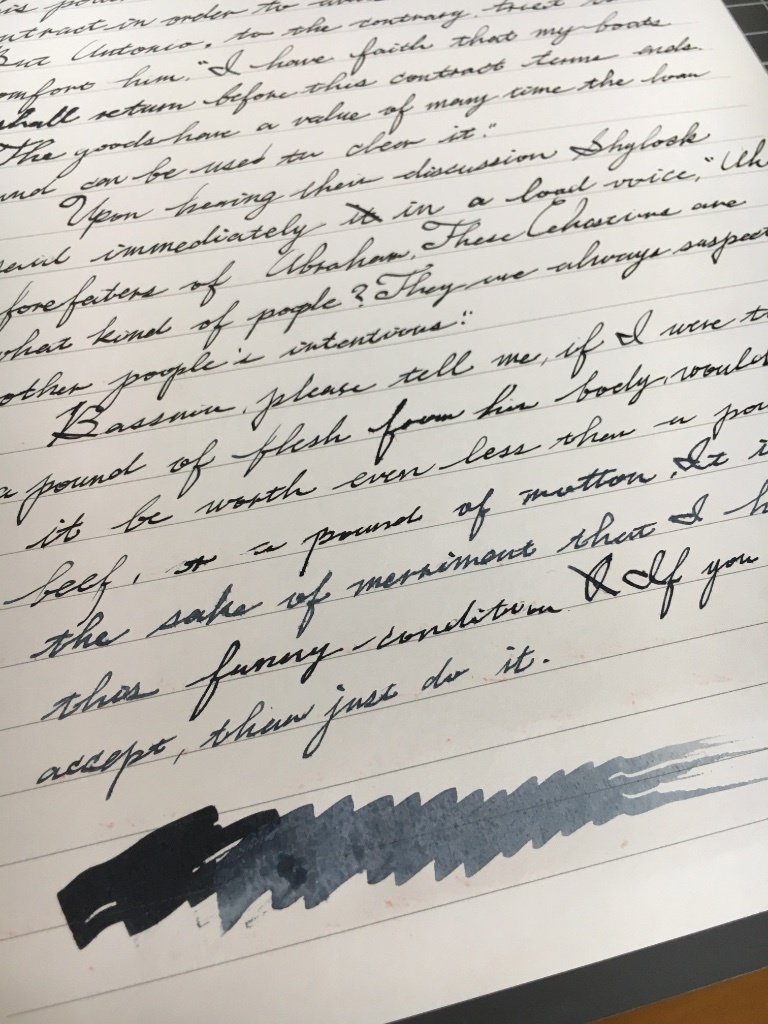 contract in order to
But Antonio, to the contrary, tried to
comfort him. "I have faith that my boats
shall return before this contract terms ends.
The goods have a value of many time the loan
and can be used to clear it."
Upon hearing their discussion Shylock
said immediately in a loud voice, "Oh
forefaters of Abraham. These Christians are
what kind of poople? They are always suspect
other poople's intentions."
Bassanio, please tell me, if I were to
a pound of flesh from his body, would
it be worth even less then a pou
beef, or a pound of mutton. It i
the sake of merriment that I h
this funny condition. If you
accept, then just do it.